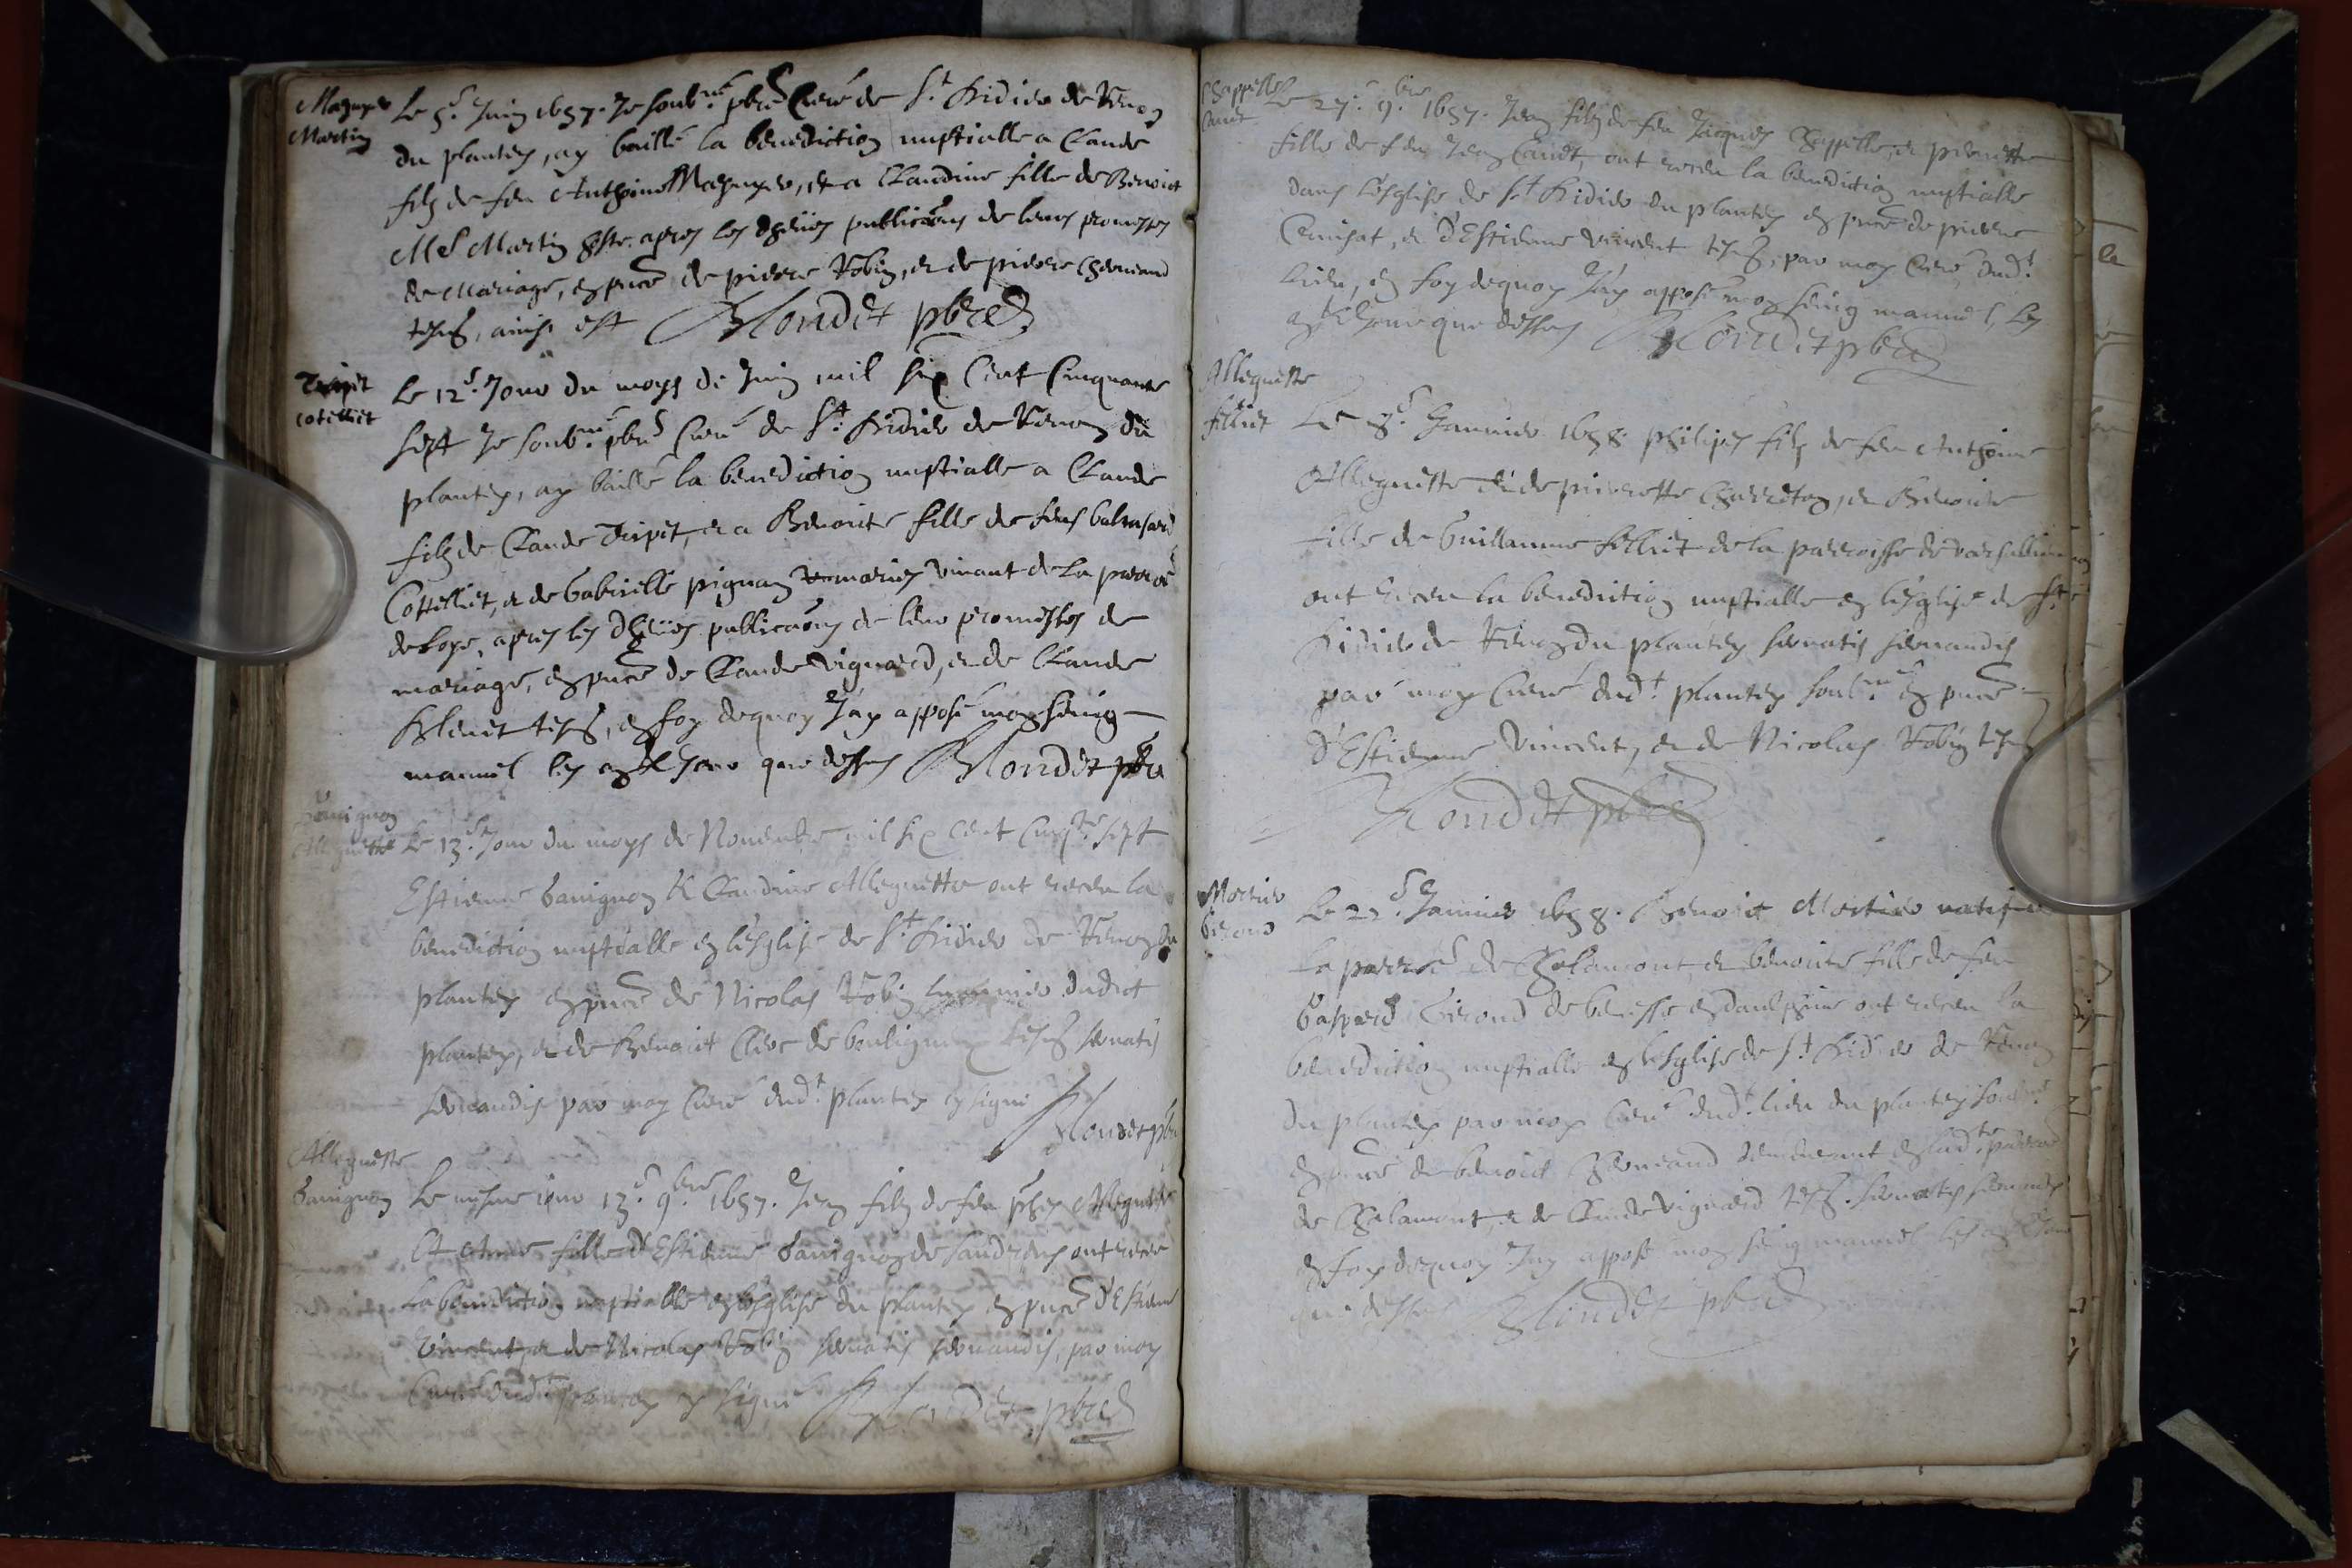 Mazuyer
Martin
Le 5.e Juin 1657. Je soubné pbre Curé de St Didier de Renon
du plantey, ay baillé la benediction nuptialle a Claude
filz de feu Anthoine Mazuyer, et a Claudine fille de Benoict
Martin apres les publicaons de leurs promesses
de Mariage, en pnce de pierre Robin, et de pierre Chevriand
tesns, ainsi est Blondet pbre
Tripit
Cotelliet
Le 12.e Jour du moys de Juin mil six Cent Cinquante
sept Je soubné pbre Curé de St Didier de Renon du
plantey, ay baillé la benediction nuptialle a Claude
filz de Claude Tripit, et a Benoite fille de feus baltasard
Cottelliet, et de Gabrielle pignan mariez vivant de la parroe
de Loye, apres les publicaons de leur promesses de
mariage, en pnce de Claude Vignard, et de Claude
Blenet tesns, en foy dequoy J'ay apposé mon seing
manuel les an et Jour que dessus Blondet pbre
Banignon
Alleguette
Le 13.e Jour du moys de Novembre mil six Cent Cinqte sept
Estienne Banignon & Claudine Alleguette ont receu la
benediction nuptialle en lesglise de St Didier de Renon du
plantey en pnce de Nicolas Robin dudict
plantey, et de Benoict Clerc de bouligneux tesns servatis
servandis par moy Curé dudt plantey cy signé
Blondet pbre
Alleguette
Banignon
Le mesme jour 13.e 9bre 1657. Jean filz de feu Alleguette
Et Anne fille d'Estienne Banignon de ont receu
la benediction nuptialle en lesglise du plantey en pnce d'Estienne
Vincent, et de Nicolas Robin servatis servandis, par moy
Curé dudt plantey cy signé Blondet pbre
Chappelle
Caudt
Le 27.e 9.bre 1657. Jean filz de feu Jacques Chappelle, et pierrette
fille de feu Jean Caudt, ont receu la benediction nuptialle
dans l'esglise de St Didier du plantey en pnce de pierre
et d'Estienne Vincent tesns, par moy Curé dudt
Lieu, en foy dequoy J'ay apposé mon seing manuel, les
an et Jour que dessus Blondet pbre
Alleguette
filliet
Le 8.e Janvier 1658. philipes filz de feu Anthoine
Alleguette et de pierrette Charreton, et Benoite
fille de Guillaume filliet de la parroisse de
ont receu la benediction nuptialle en lesglise de St
Didier de Renon du plantey servatis servandis
par moy Curé dudt plantey soubné en pnce
d'Estienne Vincent, et de Nicolas Robin tesns
Blondet pbre
Mortier
Girond
Le 22.e Janvier 1658. Benoict Mortier natif de
la parroe de Chalamont et benoite fille de feu
Gaspard Girond de en daulphiné ont receu la
benediction nuptialle en lesglise de St Didier de Renon
du plantey par moy Curé dudt lieu du plantey soubné
en pnce de benoict Chevriand demeurant en ladte parroe
de Chalamont, et de Claude Vignard tesns. servatis servandis
en foy dequoy J'ay apposé mon seing manuel les an et Jour
que dessus Blondet pbre